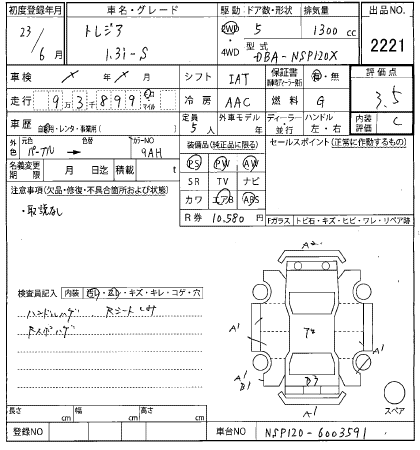 初度登録年月 車名・グレード 駆動 ドア数・形状 排気量 出品NO.
23/6月 トレジア 1.3i-S 2WD 4WD 5 1300 cc 2221
型式 DBA-NSP120X
車検 年 月 シフト IAT 保証書 有・無 評価点
走行 9万3千899 マイル 冷房 AAC 燃料 G 3.5
車歴 自家用・レンタ・事業用( ) 定員 5人 外車モデル年 ディーラー・並行 ハンドル 左・右 内装評価 C
外色 元色 パープル → 色替 カラーNO 9AH 装備品(純正品に限る) セールスポイント(正常に作動するもの)
名義変更期限 月 日迄 積載 t PS PW AW
SR TV ナビ
注意事項(欠品・修復・不具合箇所および状態) カワ エアB ABS
・取説なし R券 10,580 円 Fガラス トビ石・キズ・ヒビ・ワレ・リペア跡
A2
検査員記入 内装 キズ・キレ・コゲ・穴
ハンドル Rシート
A1 A1
A1 B1 A1
スペア
長さ cm 幅 cm 高さ cm
登録NO 車台NO NSP120-6003591